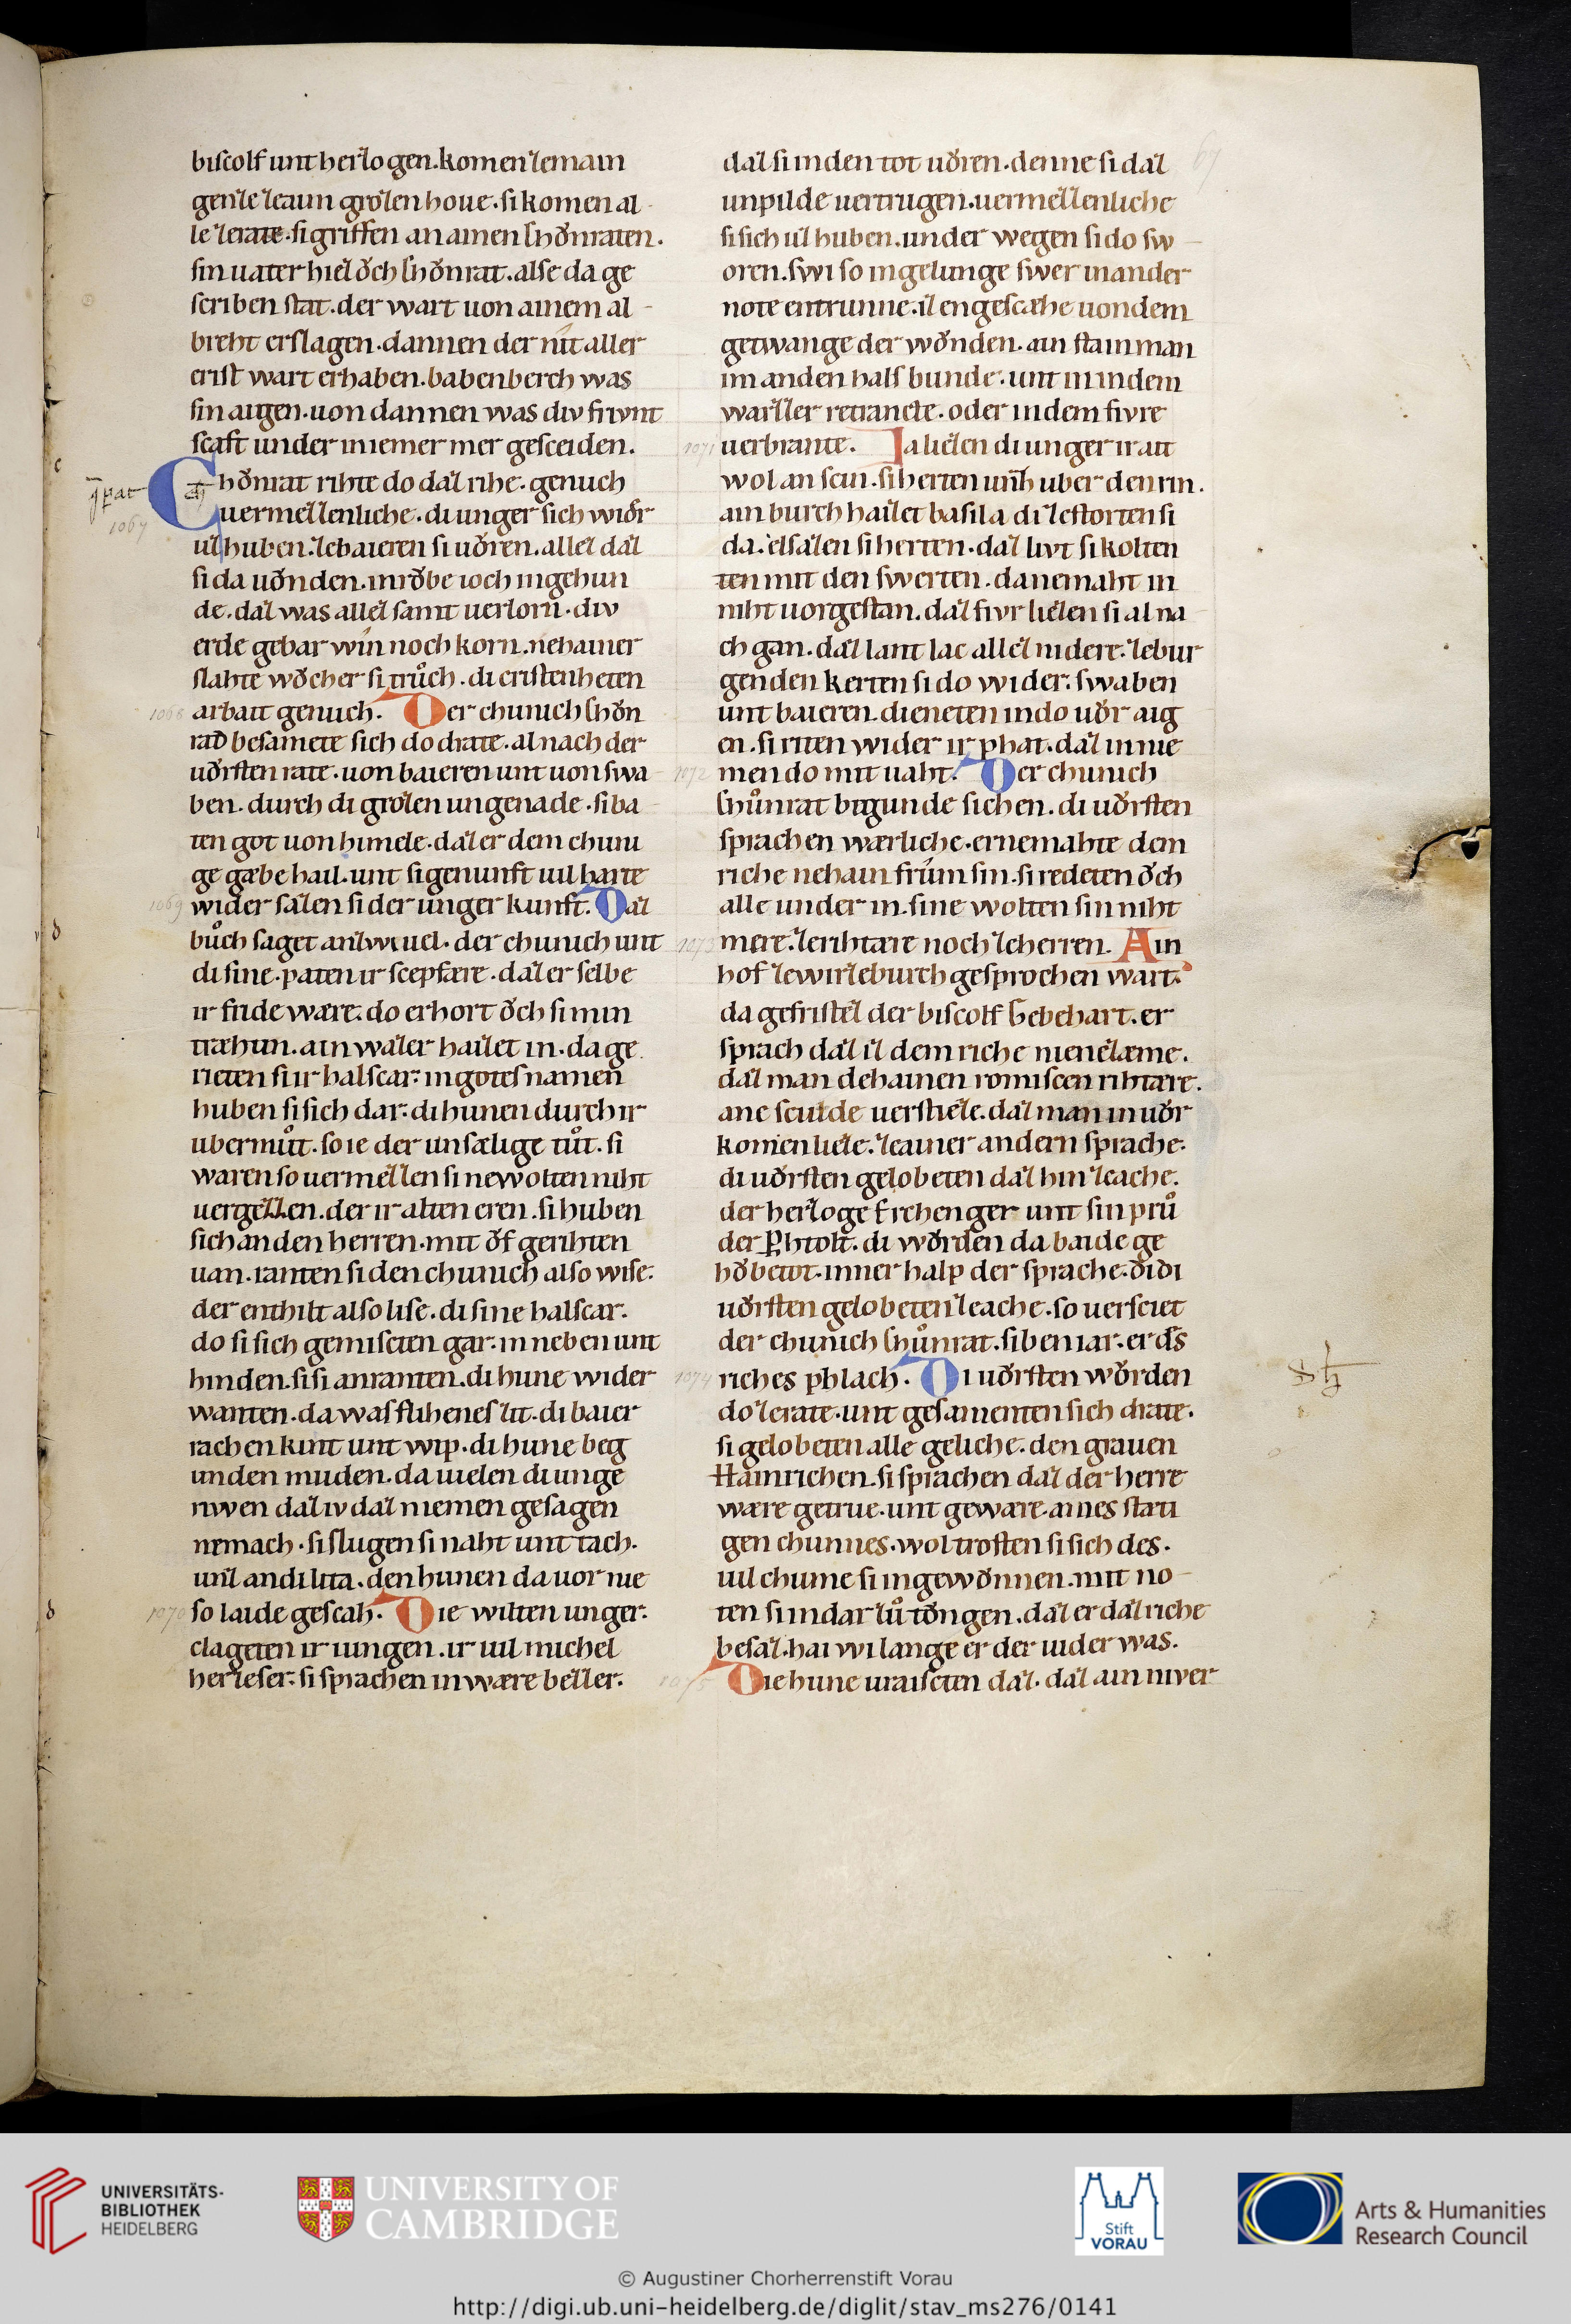 biscolf unt herzogen. komen zemain
genze zeaim grozen houe. si komen al
le zerate. si griffen an ainen Choͮnraten.
sin uater hiez oͮch Choͮnrat. alse da ge
scriben stat. der wart uon ainem al
breht erslagen. dannen der nit aller
erist wart erhaben. babenberch was
sin aigen. uon dannen was div frivnt
scaft under in iemer mer gesceiden.
Choͮnrat rihte do daz rihe. genuch
uermezzenliche. di unger sich widͦr
uz huben. zebaieren si uoͮren. allez daz
si da uoͮnden. in roͮbe ioch in gehun
de. daz was allez samt uerlorn. div
erde gebar win noch korn. nehainer
slahte woͮcher si truͦch. di cristenheten
arbait genuch. Der chunich Choͮn
rad besamete sich do drate. al nach der
uoͮrsten rate. uon baieren unt uon swa
ben. durch di grozen ungenade. si ba
ten got uon himele. daz er dem chuni
ge gæbe hail. unt sigenunft uil harte
wider sazen si der unger kunft. Daz
buͦch saget anzwiuel. der chunich unt
di sine. paten ir scepfære. daz er selbe
ir fride wære. do erhort oͮch si min
træhtin. ain wazer haizet in. da ge
rieten si ir halscar. in gotes namen
huben si sich dar. di hunen durch ir
ubermuͦt. so ie der unsælige tuͦt. si
waren so uermezzen si newolten niht
uergezzen. der ir alten eren. si huben
sich an den herren. mit oͮf gerihten
uan. ranten si den chunich also wise.
der enthilt also lise. di sine halscar.
do si sich gemiscten gar. in neben unt
hinden. si si anranten. di hune wider
wanten. da was flihenes zit. di baier
rachen kint unt wip. di hune beg
unden muden. da uielen di unge
riwen daz iv daz niemen gesagen
nemach. si slugen si naht unt tach.
unz an di lita. den hunen da uor nie
so laide gescah. Die wilten unger.
clageten ir iungen. ir uil michel
herzeser. si sprachen in wære bezzer.
daz si in den tot uoͮren. denne si daz
unpilde uertrugen. uermezzenliche
si sich uz huben. under wegen si do sw
oren. swi so in gelunge swer in ander
note entrunne. iz engescæhe uon dem
getwange der woͮnden. ain stain man
im an den hals bunde. unt in in dem
wazzer retrancte. oder in dem fivre
uerbrante. Ja liezen di unger ir ait
wol an scin. si herten unz uber den rin.
ain burch haizet basila di zestorten si
da. elsazen si herten. daz livt si kolten
ten mit den swerten. da nemaht in
niht uor gestan. daz fivr liezen si al na
ch gan. daz lant lac allez nidere. zebur
genden kerten si do wider. swaben
unt baieren. dieneten in do uoͮr aig
en. si riten wider ir phat. daz in nie
men do mit uaht. Der chunich
Chuͦnrat bigunde sichen. di uoͮrsten
sprachen wærliche. er nemahte dem
riche nehain frum sin. si redeten oͮch
alle under in. sine wolten sin niht
mere. zerihtare noch zeherren. Ain
hof zewirzeburch gesprochen wart.
da gefristez der biscolf Gebehart. er
sprach daz iz dem riche nienezæme.
daz man dehainen romiscen rihtære.
ane sculde uerstieze. daz man in uoͮr
komen lieze. zeainer andern sprache.
di uoͮrsten gelobeten daz hin zeache.
der herzoge Erchenger unt sin pruͦ
der Phtolt. di woͮrden da baide ge
hoͮbetot. inner halp der sprache. oͮ di
uoͮrsten gelobeten zeache. so uersciet
der chunich Chuͦnrat. siben iar. er ds̄
riches phlach. Di uoͮrsten woͮrden
do zerate. unt gesamenten sich drate.
si gelobeten alle geliche. den grauen
Hainrichen. si sprachen daz der herre
wære getrue. unt geware. aines stati
gen chunnes. wol trosten si sich des.
uil chume si in gewoͮnnen. mit no
ten si in dar zuͦ toͮngen. daz er daz riche
besaz. hai wi lange er der uider was.
Die hune uraiscten daz. daz ain niwer
1067
1068
1069
1070
1071
1072
1073
1074
1075
67
UNIVERSITÄTS-
BIBLIOTHEK
HEIDELBERG
UNIVERSITY OF
CAMBRIDGE
Stift
VORAU
Arts & Humanities
Research Council
© Augustiner Chorherrenstift Vorau
http://digi.ub.uni-heidelberg.de/diglit/stav_ms276/0141